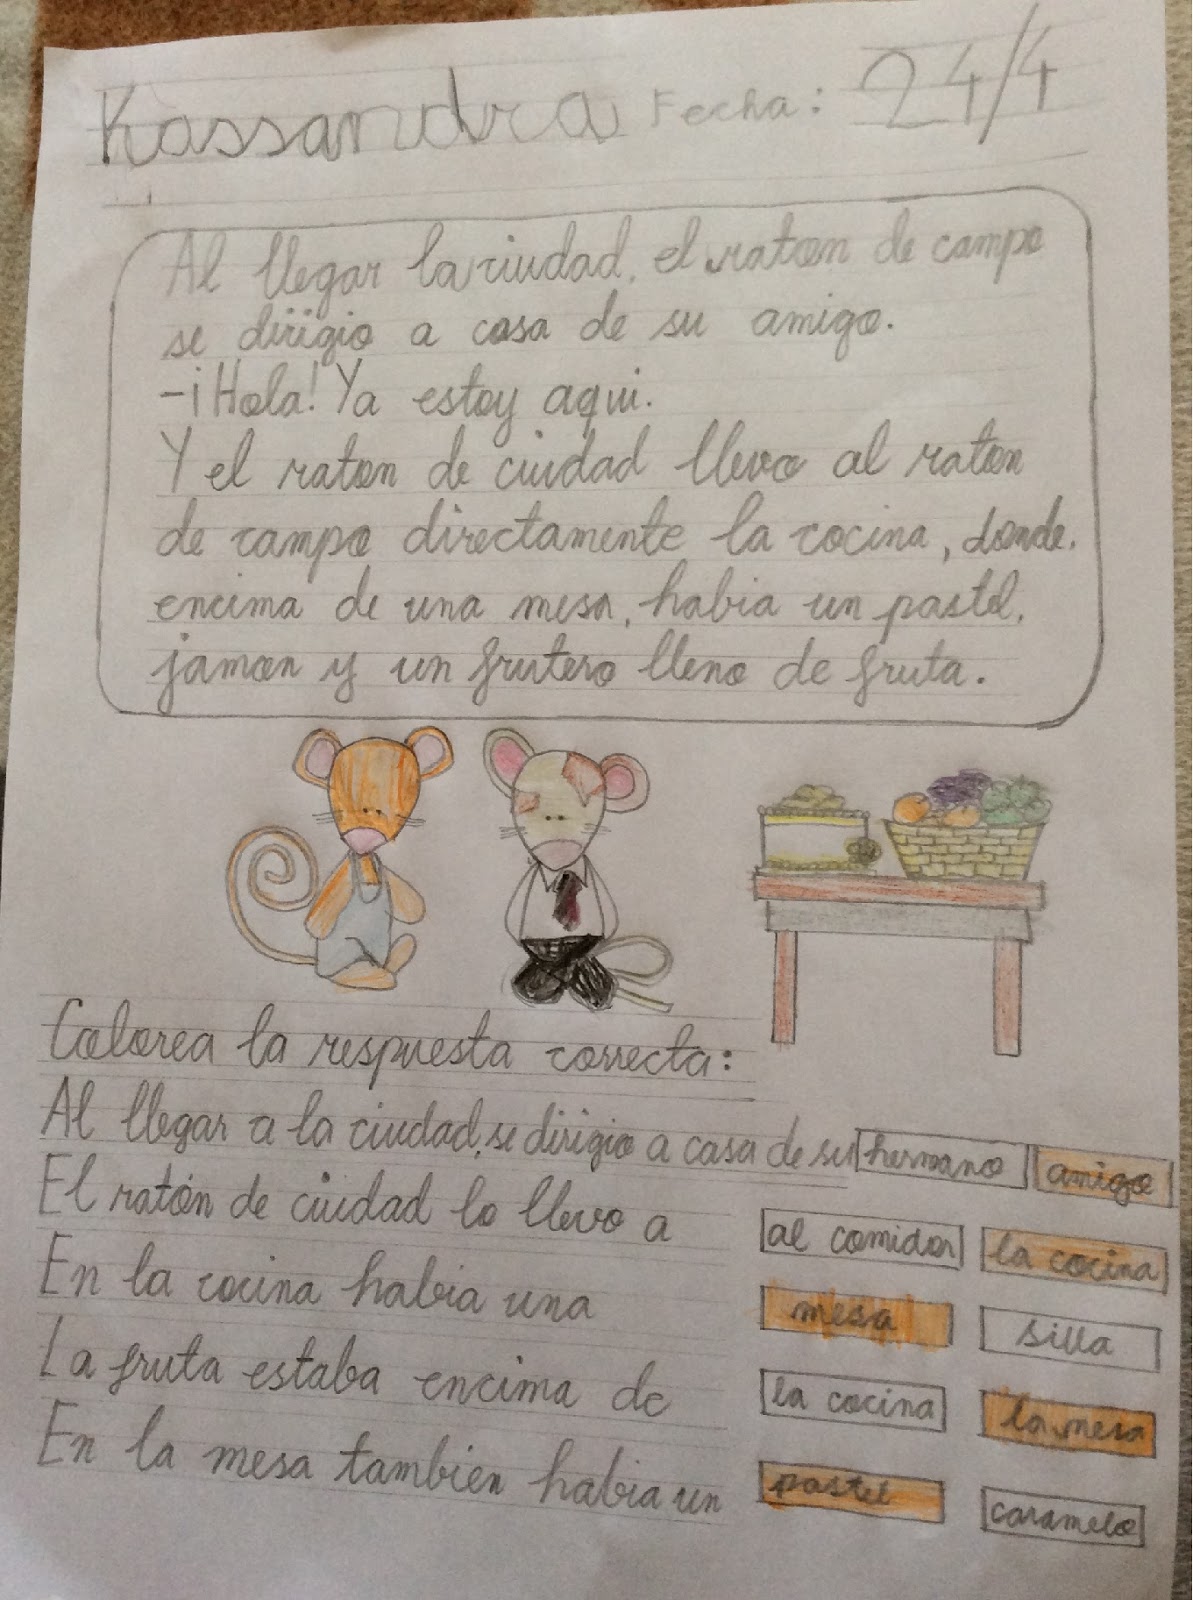 Kassandra Fecha: 24/4
Al llegar la ciudad, el raton de campo
se dirigio a casa de su amigo.
-¡Hola! Ya estoy aqui.
Y el raton de ciudad llevo al raton
de campo directamente la cocina, donde,
encima de una mesa, habia un pastel,
jamon y un frutero lleno de fruta.
Colorea la respuesta correcta:
Al llegar a la ciudad, se dirigio a casa de su hermano amigo
El ratón de ciudad lo llevo a al comidor la cocina
En la cocina habia una mesa silla
La fruta estaba encima de la cocina la mesa
En la mesa tambien habia un pastel caramelo